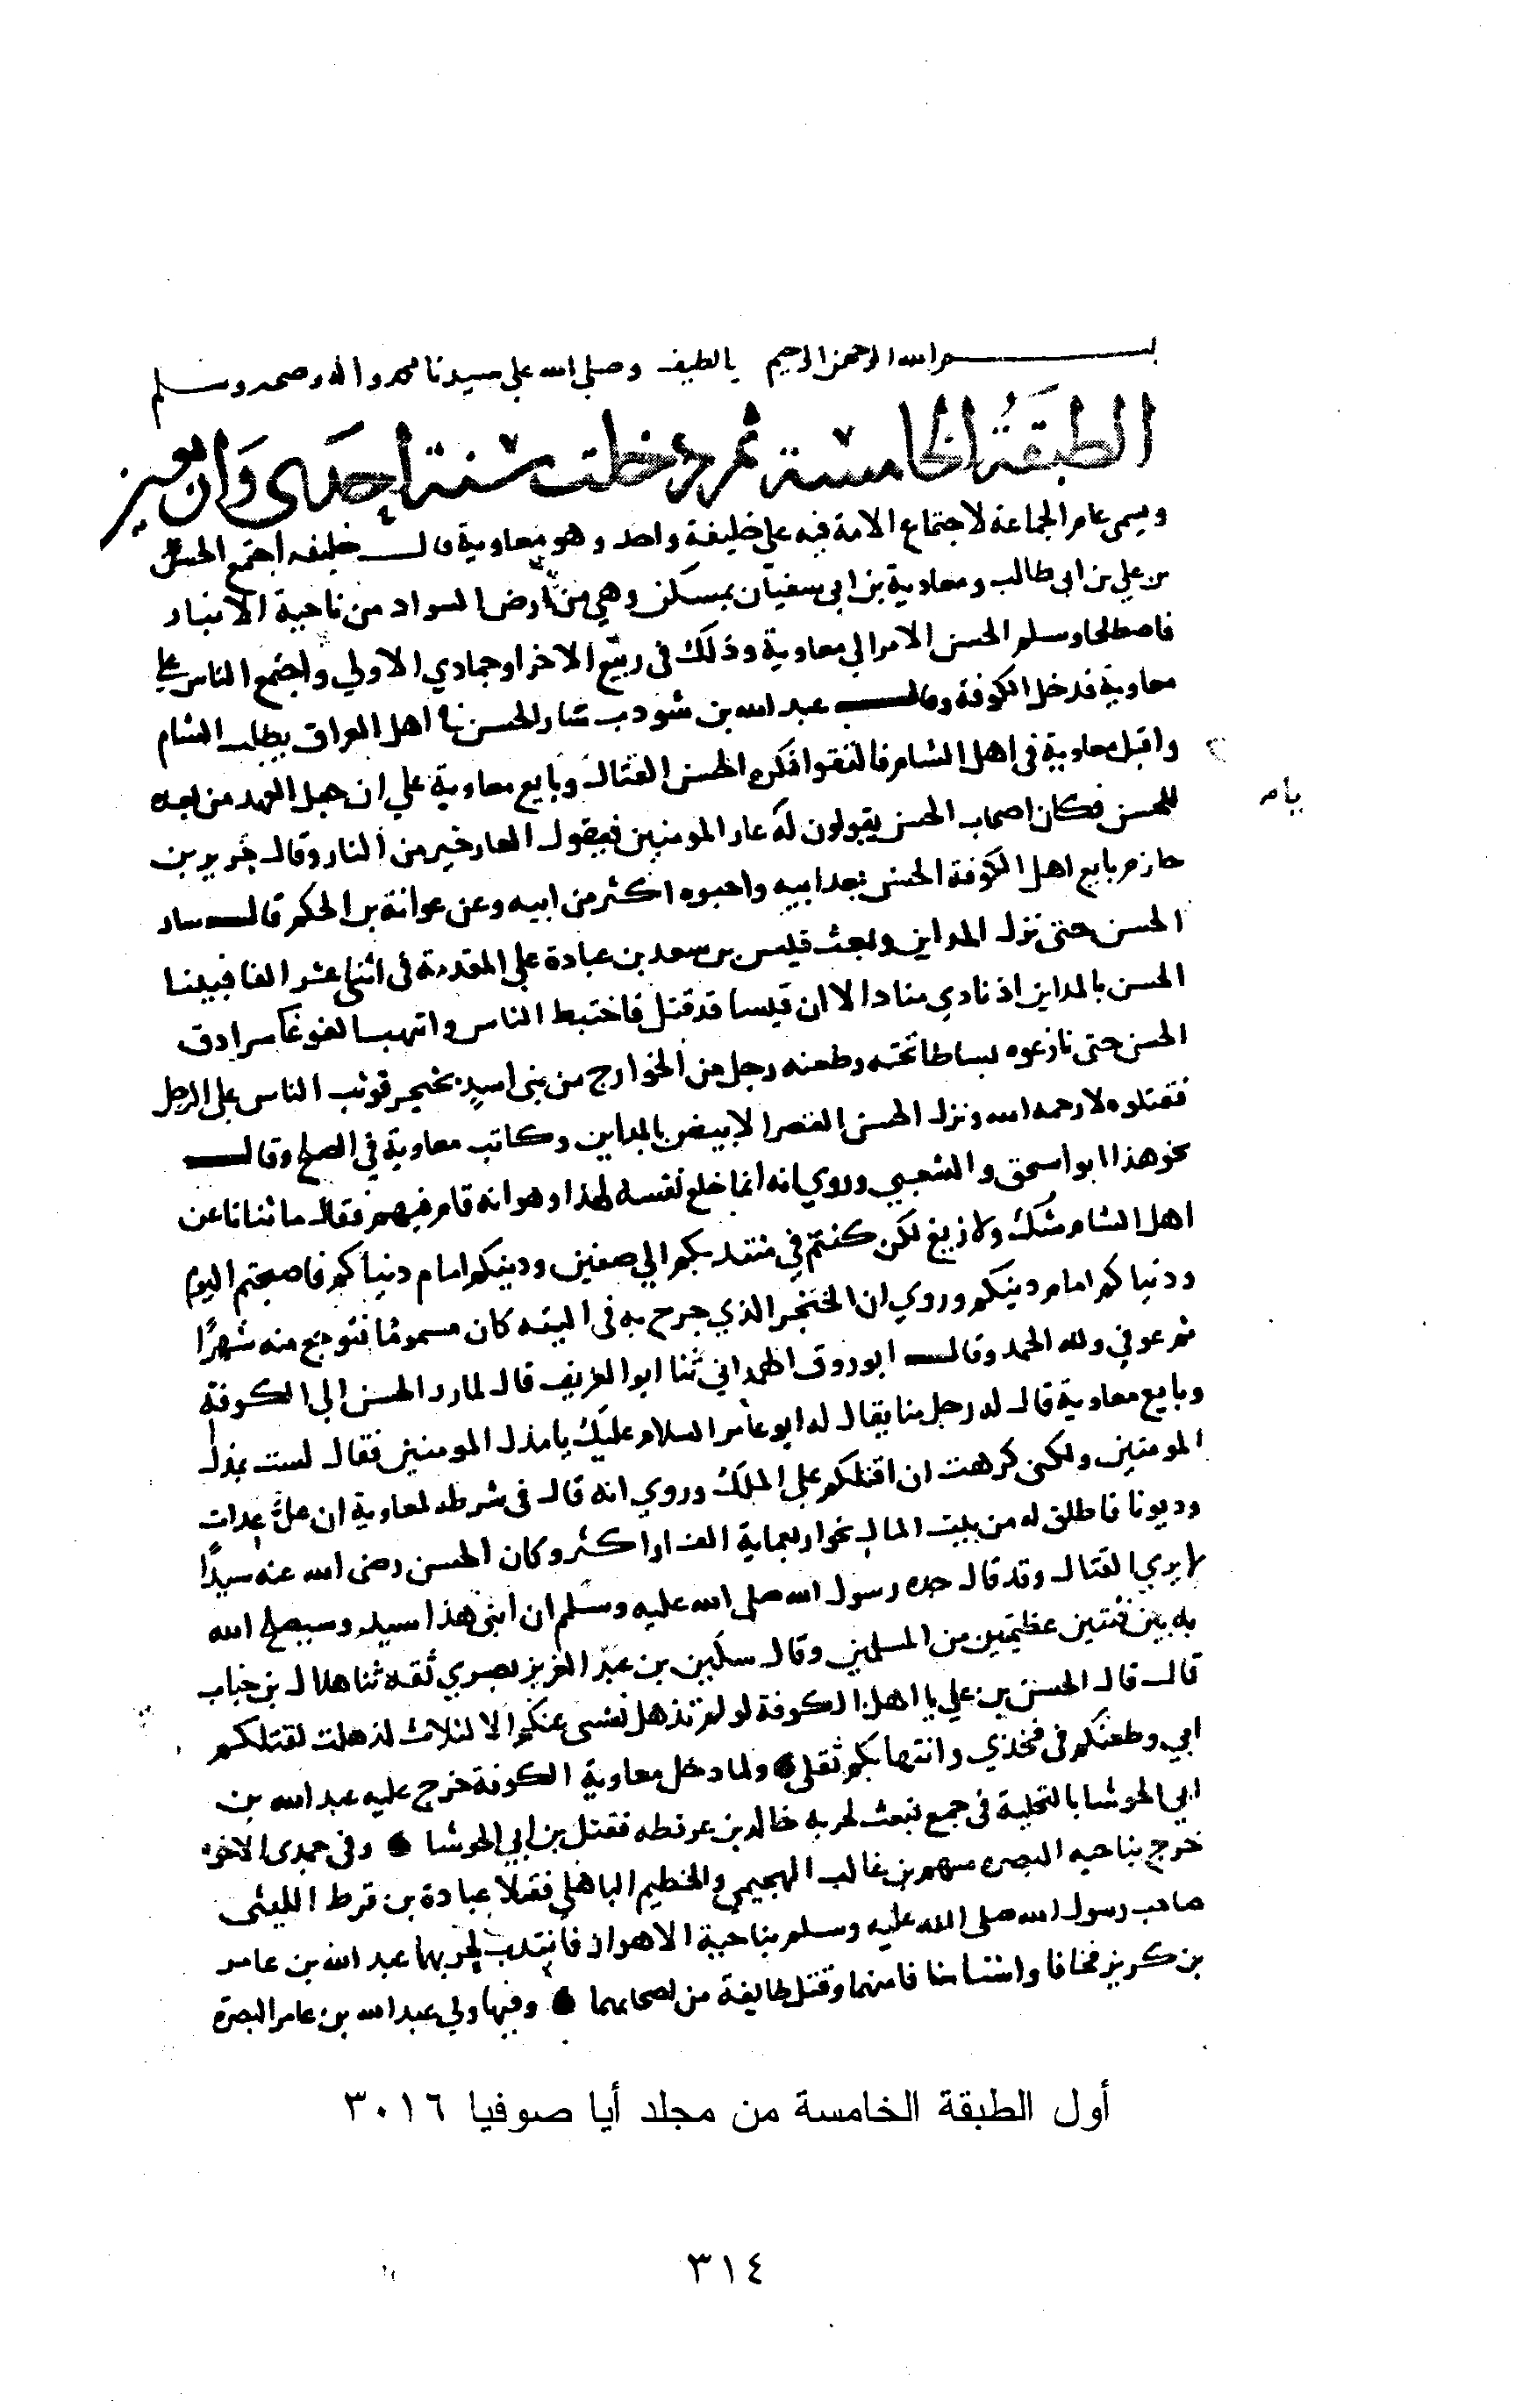 بسم الله الرحمن الرحيم يا لطيف وصلى الله على سيدنا محمد واله وصحبه وسلم
الطبقة الخامسة ثم دخلت سنة إحدى وأربعين
ويسمى عام الجماعة لاجتماع الامة فيه على خليفة واحد وهو معاوية قال خليفه اجتمع الحسن
بن علي بن ابي طالب ومعاوية بن ابي سفيان بمسكن وهي من ارض السواد من ناحية الانبار
فاصطلحا وسلم الحسن الامر الي معاوية وذلك في ربيع الاخر او جمادي الاولي واجتمع الناس على
معاوية فدخل الكوفة وقال عبد الله بن شوذب سار الحسن في اهل العراق يطلب الشام
واقبل معاوية في اهل الشام فالتقوا فكره الحسن القتال وبايع معاوية علي ان جعل العهد من بعده
للحسن فكان اصحاب الحسن يقولون له عار المومنين فيقول العار خير من النار وقال جرير بن
يا
حازم بايع اهل الكوفة الحسن بعد ابيه واحبوه اكثر من ابيه وعن عوانة بن الحكم قال سار
الحسن حتى نزل المداين وبعث قيس بن سعد بن عبادة على المقدمة في اثنى عشر الفا فبينا
الحسن بالمداين اذ نادي مناد الا ان قيسا قد قتل فاختبط الناس وانتهب الغوغا سرادق
الحسن حتى نازعوه بساطا تحته وطعنه رجل من الخوارج من بنى اسد بخنجر فوثب الناس على الرجل
فقتلوه لا رحمه الله ونزل الحسن القصر الابيض بالمداين وكاتب معاوية في الصلح وقال
نحو هذا ابو اسحق والشعبي وروي انه انما خلع نفسه لهذا وهو انه قام فيهم فقال ما ثنانا عن
اهل الشام شك ولا زيغ لكن كنتم في منتدبكم الي صفين ودينكم امام دنياكم فاصبحتم اليوم
ودنياكم امام دينكم وروي ان الخنجر الذي جرح به في اليته كان مسموما فتوجع منه شهرًا
ثم عوفي ولله الحمد وقال ابو روق الهمداني ثنا ابو الغريف قال لما رد الحسن الى الكوفة
وبايع معاوية قال له رجل منا يقال له ابو عامر السلام عليك يا مذل المومنين فقال لست بمذل
المومنين ولكني كرهت ان اقتلكم على الملك وروي انه قال في شرطه لمعاوية ان علي عدات
وديونا فاطلق له من بيت المال نحو اربعماية الف او اكثر وكان الحسن رضى الله عنه سيدًا
لا يري القتال وقد قال جده رسول الله صلى الله عليه وسلم ان ابنى هذا سيد وسيصلح الله
به بين فئتين عظيمتين من المسلمين وقال سكين بن عبد العزيز بصري ثقه ثنا هلال بن خباب
قال قال الحسن بن علي يا اهل الكوفة لو لم تذهل نفسى عنكم الا لثلاث لذهلت لقتلكم
ابي وطعنكم في فخذي وانتهابكم ثقلي ولما دخل معاوية الكوفة خرج عليه عبد الله بن
ابي الحوشا بالنخيلة في جمع فبعث لحربه خالد بن عرفطه فقتل بن ابي الحوشا وفي جمدى الاخره
خرج بناحيه البصره سهم بن غالب الهجيمي والخطيم الباهلي فقتلا عبادة بن قرط الليثى
صاحب رسول الله صلى الله عليه وسلم بناحية الاهواز فانتدب لحربهما عبد الله بن عامر
بن كريز فخافا واستامنا فامنهما وقتل طايفة من اصحابهما وفيها ولي عبد الله بن عامر البصرة
أول الطبقة الخامسة من مجلد أيا صوفيا ٣٠١٦
٣١٤